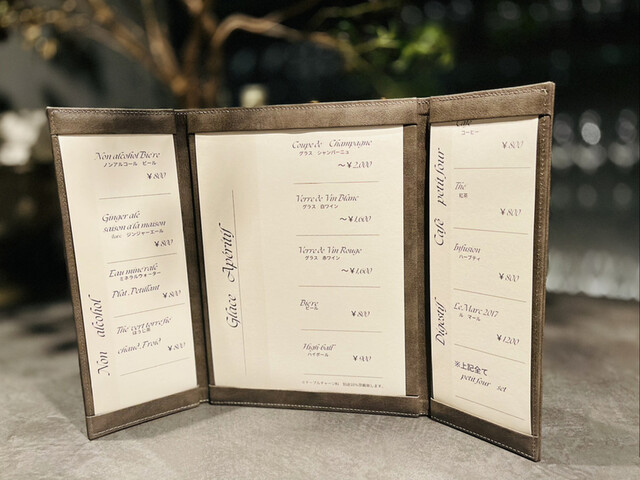 Non alcohol
Non alcohol Biere
ノンアルコール ビール
¥800
Ginger ale
saison a la maison
ジンジャーエール
¥800
Eau minerale
ミネラルウォーター
Plat, Petillant
¥800
Thé vert torrefie
ほうじ茶
chaud, Froid
¥800
Glace Apéritif
Coupe de Champagne
グラス シャンパーニュ
～¥2,000
Verre de Vin Blanc
グラス 白ワイン
～¥1,600
Verre de Vin Rouge
グラス 赤ワイン
～¥1,600
Biere
ビール
¥800
High ball
ハイボール
¥900
Café petit four
Digestif
Cafe
コーヒー
¥800
Thé
紅茶
¥800
Infusion
ハーブティ
¥800
Le Marc 2017
ル マール
¥1200
※上記全て
petit four set